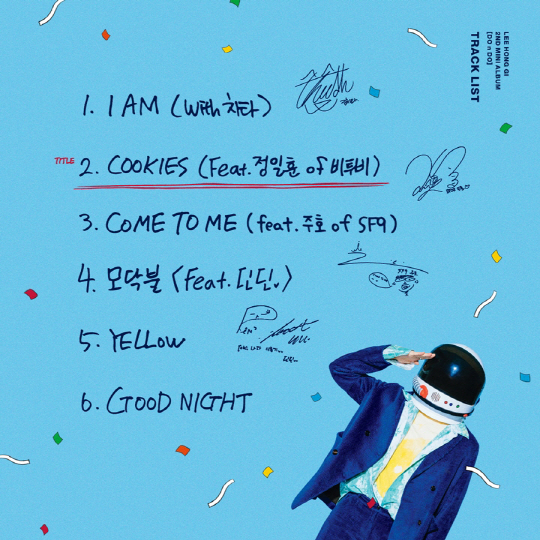 LEE HONG GI
2ND MINI ALBUM
[DO n DO]
TRACK LIST
1. I AM (With 치타)
TITLE 2. COOKIES (Feat. 정일훈 of 비투비)
3. COME TO ME (feat. 주호 of SF9)
4. 모닥불 (Feat. 딘딘)
5. YELLOW
6. GOOD NIGHT